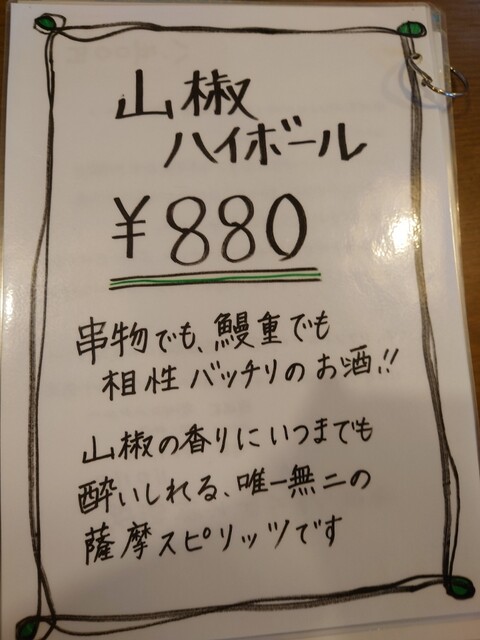 山椒
ハイボール
¥880
串物でも、鰻重でも
相性バッチリのお酒!!
山椒の香りにいつまでも
酔いしれる、唯一無二の
薩摩スピリッツです